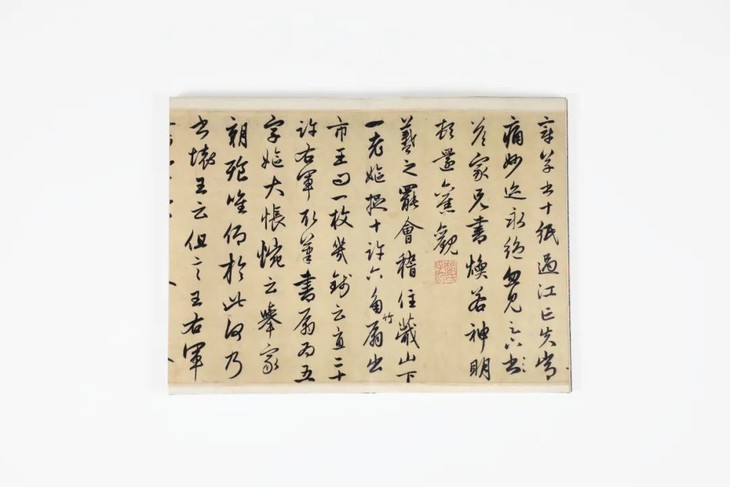 章草書十紙過江亡失常
痛妙迹永絶忽見足下書
答家兄書煥若神明
頓還舊觀
羲之罷會稽住蕺山下
一老嫗捉十許六角竹扇出
市王問一枚幾錢云直二十
許右軍取筆書扇為五
字嫗大悵惋云舉家
朝飡唯仰於此何乃
書壞王云但言王右軍